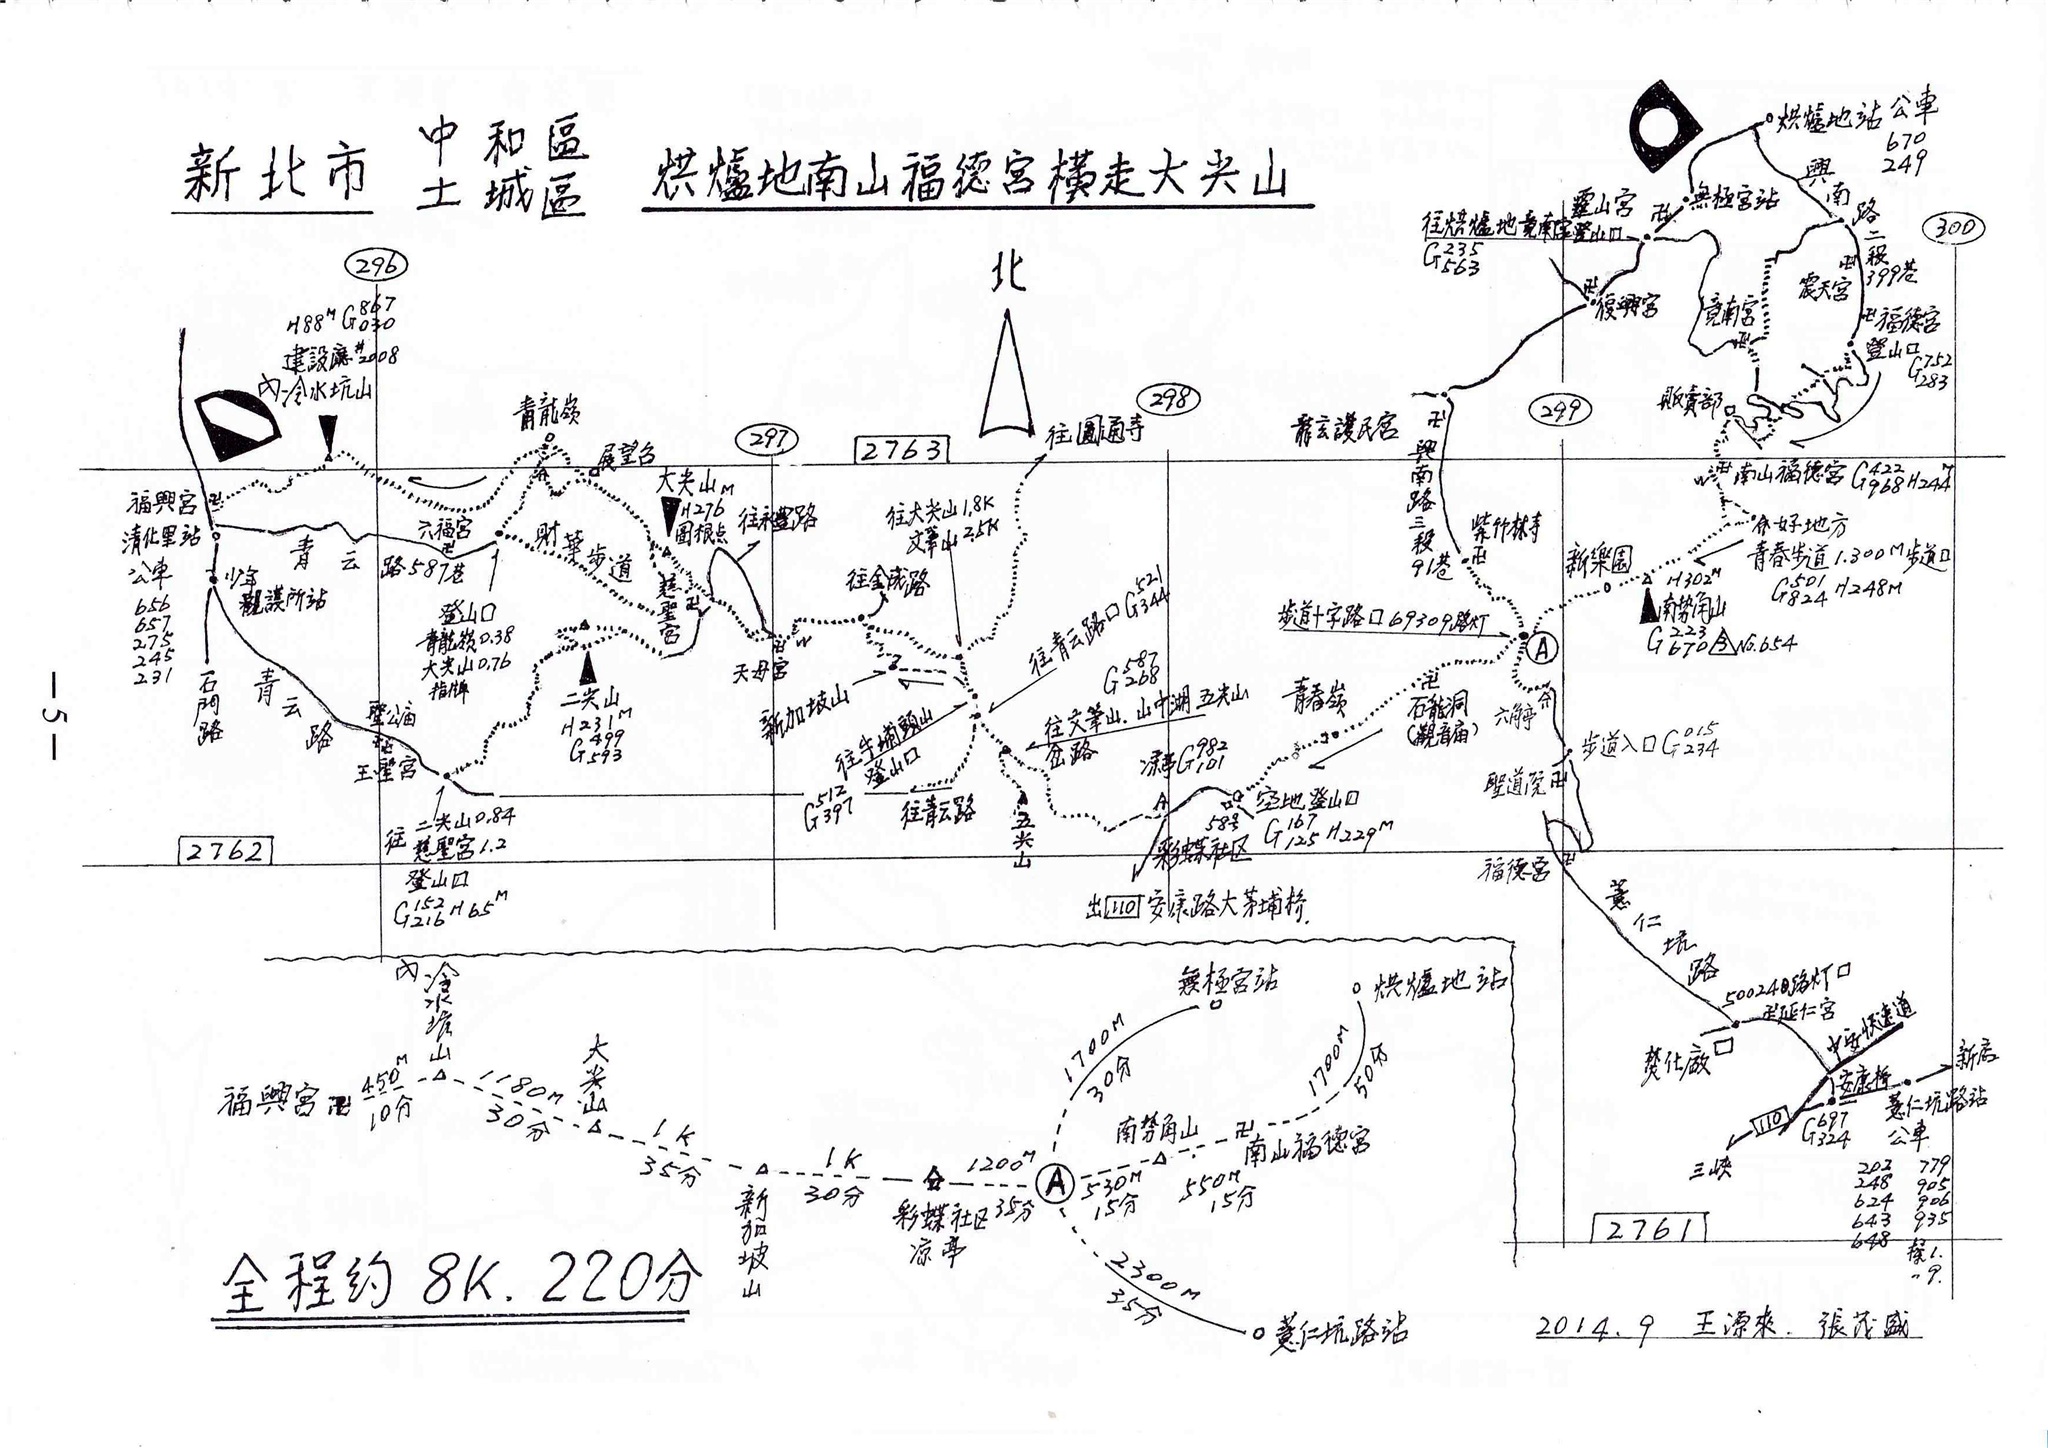 新北市 中和區 土城區 烘爐地南山福德宮橫走大尖山
296
H88M G867 030
建設廳#2008
內冷水坑山
青龍嶺
展望台
297
2763
北
298
往圓通寺
299
300
烘爐地站 公車
670
249
興南路二段399巷
無極宮站
靈山宮
往烘爐地竟南宮登山口
G235 563
復興宮
竟南宮
震天宮
福德宮
登山口
G752 283
販賣部
龍玄護民宮
興南路三段91巷
紫竹林寺
南山福德宮 G422 968 H244M
好地方
青春步道1.300M步道口
G501 824 H248M
新樂園
H302M
南勢角山
G223 670 No.654
步道十字路口69309路灯
A
六角亭
步道入口 G015 234
聖道院
福德宮
薏仁坑路
福興宮
清化里站
公車
656
657
275
245
231
少年
觀護所站
石門路
青云路587巷
青云路
六福宮
財華步道
登山口
青龍嶺0.38
大尖山0.76
指牌
大尖山
H276M
圖根点
往永豐路
慈聖宮
天母宮
二尖山
H231M
G499 593
聖公庙
玉聖宮
往 二尖山0.84
慈聖宮1.2
登山口
G152 216 H65M
2762
往金城路
往大尖山1.8K
文筆山2.5K
新加坡山
往青云路口 G521 344
往牛埔頭山
登山口
G512 397
往青云路
五尖山
G587 268
往文筆山.山中湖.五尖山
岔路
涼亭 G982 101
青春嶺
石龍洞
(觀音庙)
58号
空地登山口
G167 125 H229M
彩蝶社区
出 110 安康路大茅埔桥.
50024路灯口
延仁宮
焚化廠
中安快速道
安康桥
新店
薏仁坑路站
公車
G697 324
110
三峽
202 779
248 905
624 906
643 935
648 棕1.
〃9.
2761
內冷水坑山
福興宮
450M
10分
1180M
30分
大尖山
1K
35分
新加坡山
1K
30分
彩蝶社区
涼亭
1200M
35分
A
無極宮站
1700M
30分
烘爐地站
1700M
50分
南勢角山
530M
15分
南山福德宮
550M
15分
2300M
35分
薏仁坑路站
全程約8K.220分
2014.9 王源來.張茂盛
-5-